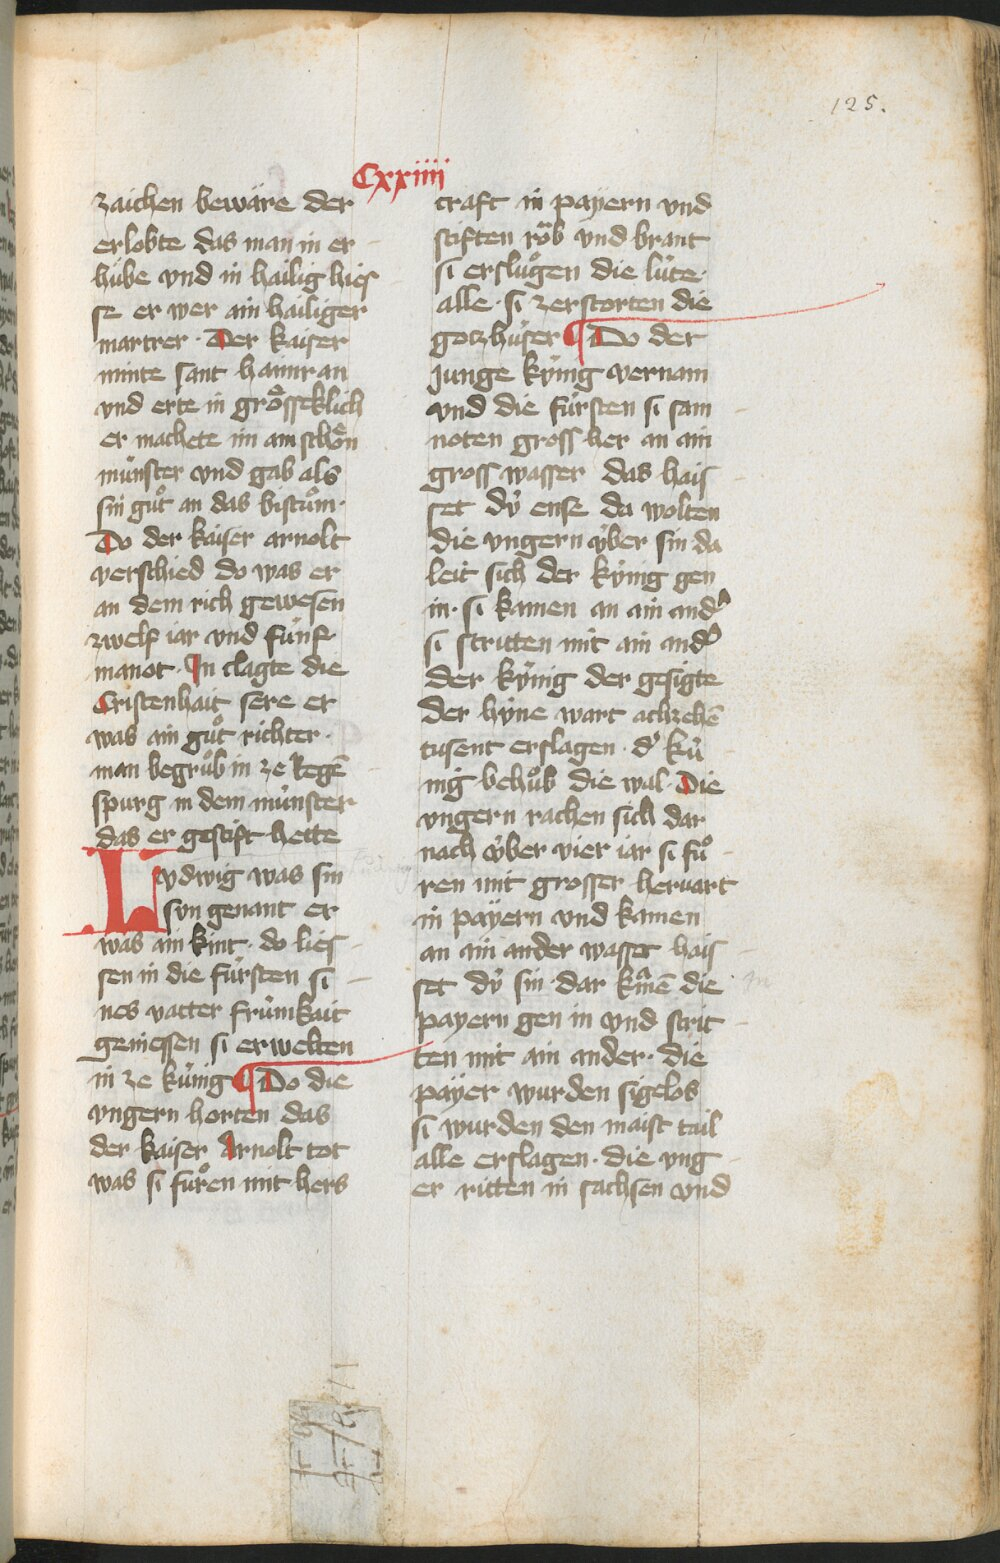 125.
Cxxiiii
zaichen bewäre der
erlobte das man in er
hübe vnd in hailig hies
se er wer ain hailiger
martrer · Der kaiser
minte sant haimran
vnd erte in grösseklich
er machete im ain schön
münster vnd gab als
sin guͦt an das bistuͦm·
Do der kaiser arnolt
verschied do was er
an dem rich gewesen
zwelf iar vnd fünf
manot · In clagte die
Cristenhait sere er
was ain guͦt richter ·
man begruͦb in ze Regē
spurg in dem münster
das er gestift hette
Lvdwig was sin
svn genant er
was ain kint · do lies
sen in die fürsten si
nes vatter frümkait
geniessen si erwelten
in ze künig ¶ Do die
vngern horten das
der kaiser Arnolt tot
was si fuͦren mit hers
craft in payern vnd
stiften roͮb vnd brant
si ersluͦgen die lüte·
alle · si zerstorten die
gotzhüser ¶ Do der
junge kÿnig vernam
vnd die fürsten si sam
noten gross her an ain
gross wasser das hais
set dÿ ense da wolten
die vngern vber sin da
leit sich der kÿnig gen
in · si kamen an ain and᾽
si stritten mit ain and᾽
der kÿnig der gesigte
der hÿne wart achzehē
tusent erslagen · d᾽ kü
nig behuͦb die wal · Die
vngern rachen sich dar
nach vber vier iar si fuͦ
ren mit grosser hervart
in payern vnd kamen
an ain ander wasser hais
set dÿ sin · dar kamē die
payern gen in vnd strit
ten mit ain ander · die
payer wurden sigelos
si wurden den maist tail
alle erslagen · die vng
er ritten in sachsen vnd